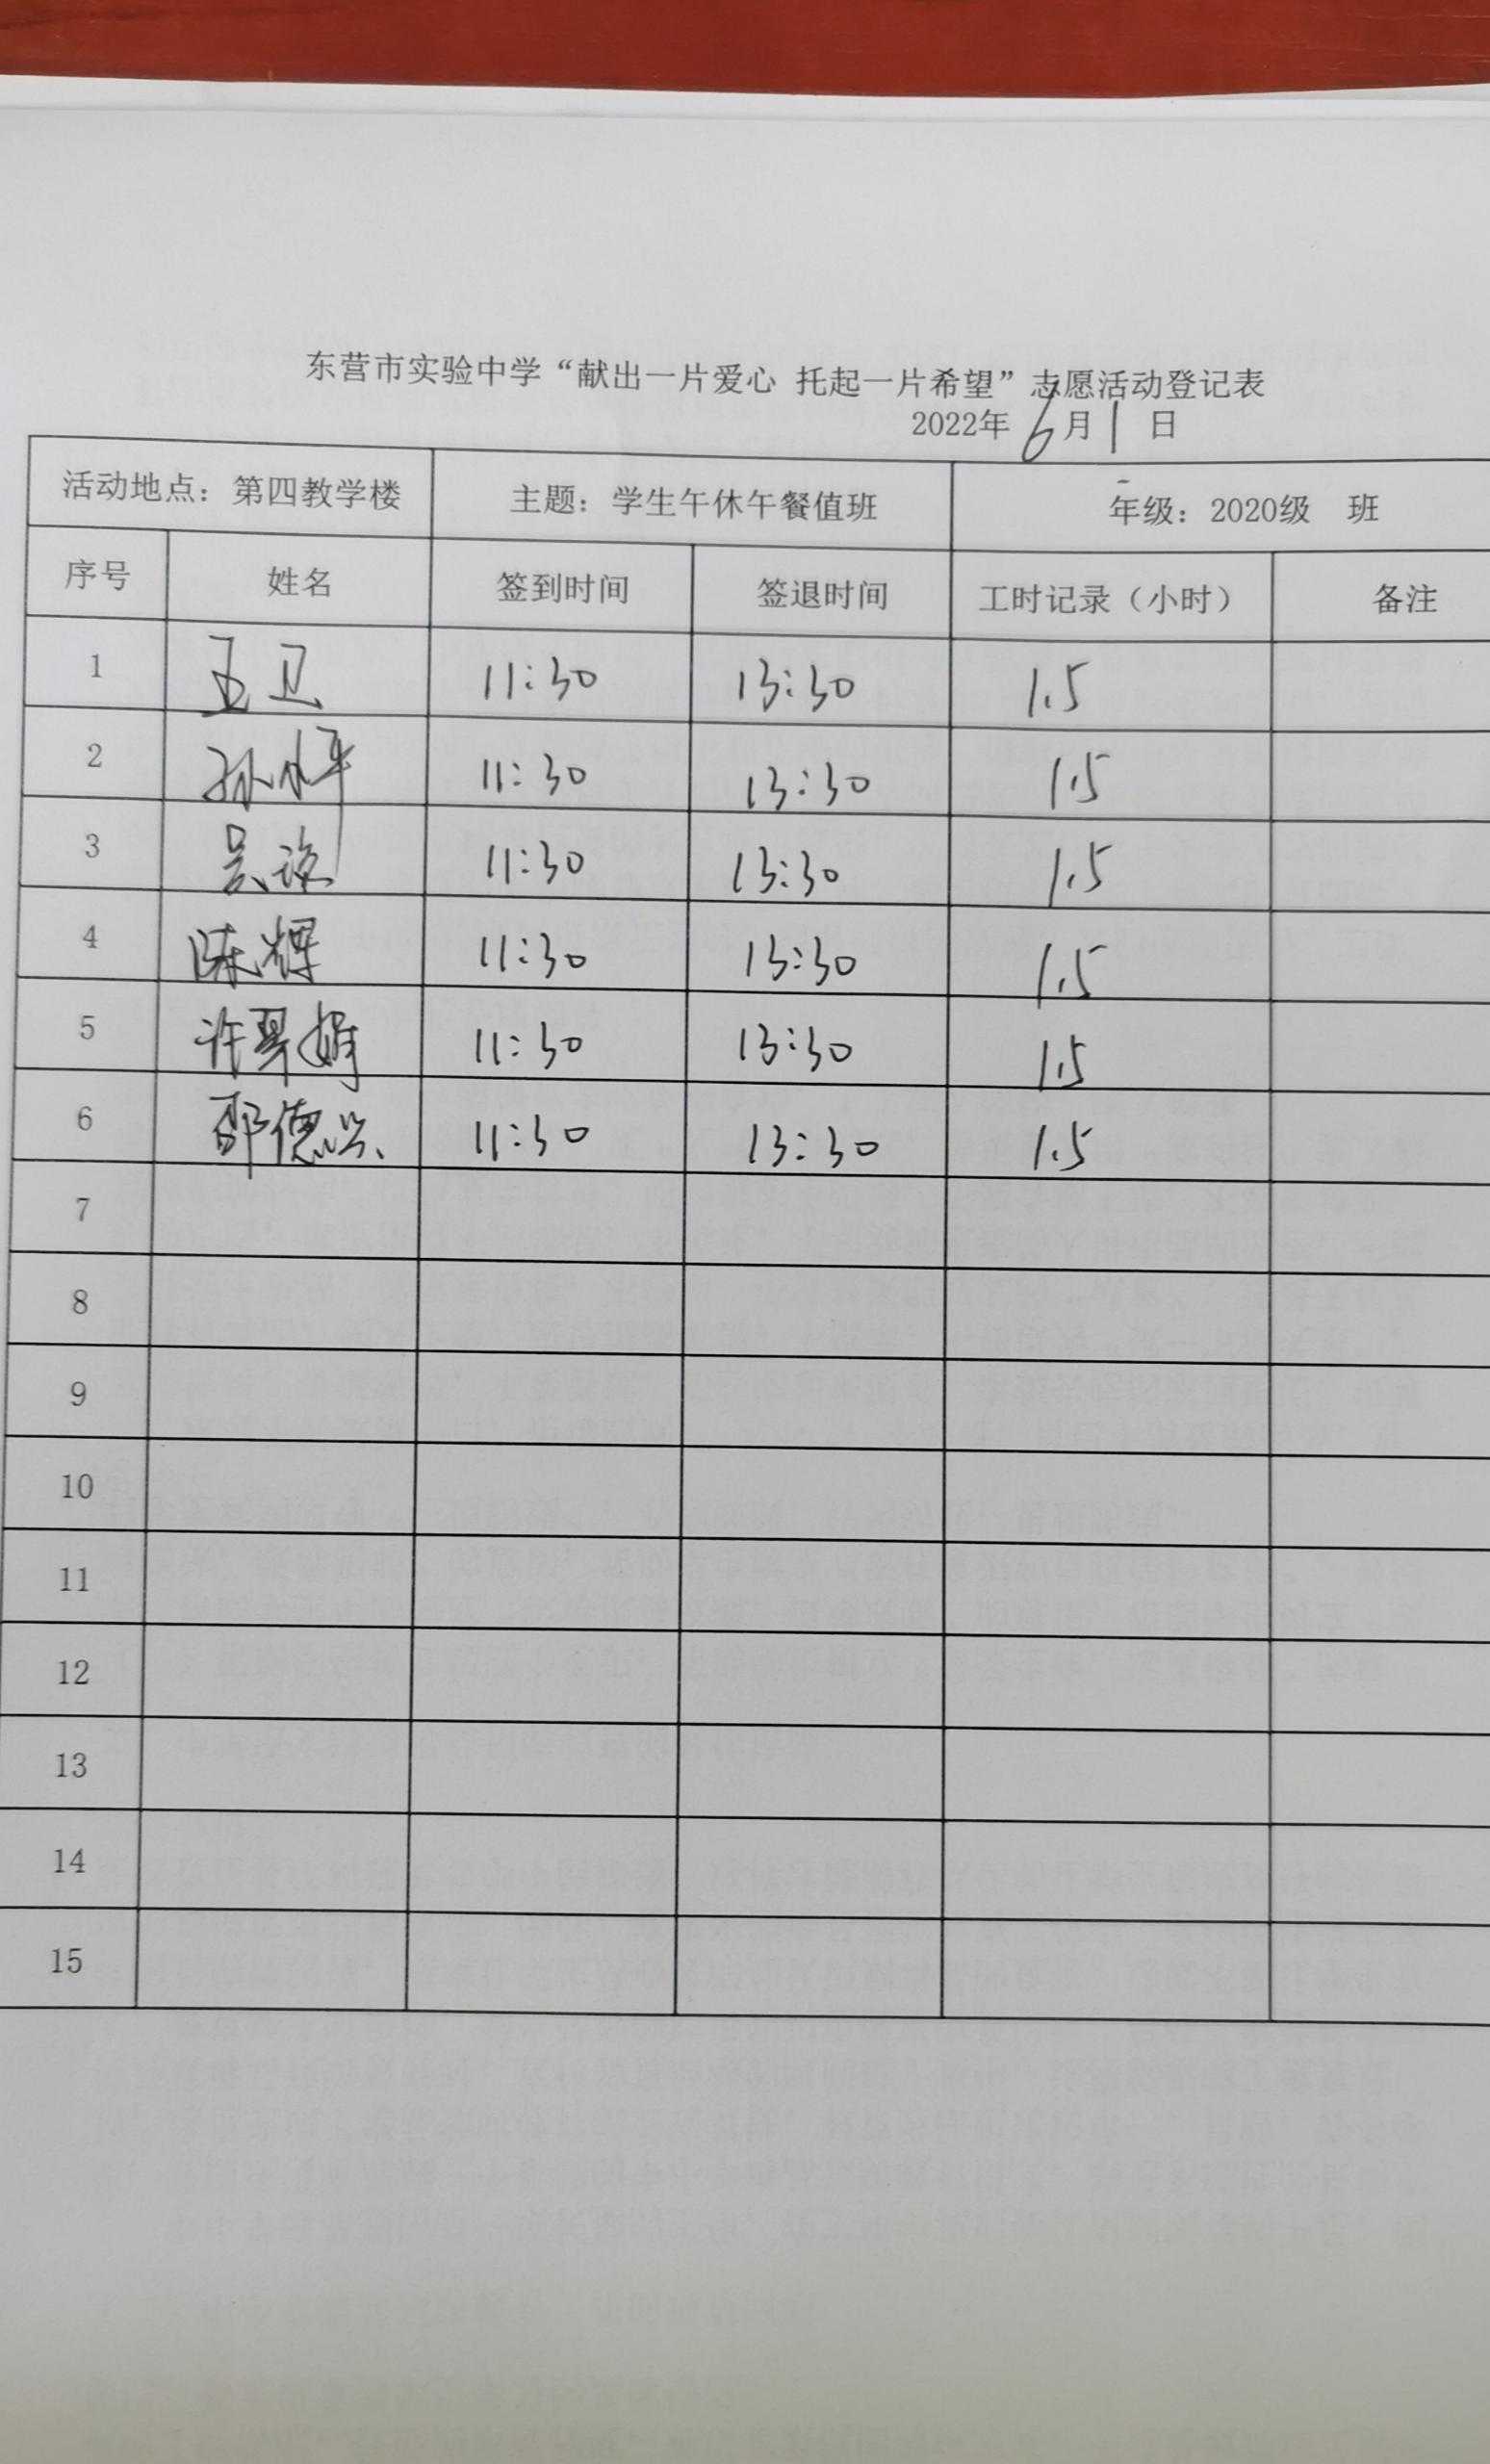 东营市实验中学“献出一片爱心 托起一片希望”志愿活动登记表
2022年6月1日
活动地点：第四教学楼 主题：学生午休午餐值班 年级：2020级 班
序号 姓名 签到时间 签退时间 工时记录（小时） 备注
1 王卫 11:30 13:30 1.5
2 孙水平 11:30 13:30 1.5
3 吴 11:30 13:30 1.5
4 陈辉 11:30 13:30 1.5
5 许翠娟 11:30 13:30 1.5
6 邵德兴 11:30 13:30 1.5
7
8
9
10
11
12
13
14
15